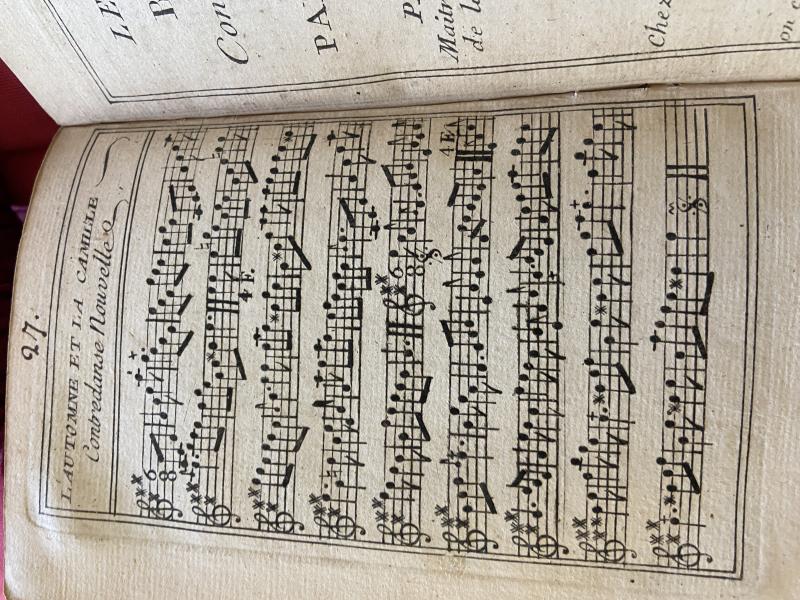 27.
L'AUTOMNE ET LA CAMILLE
Contredanse Nouvelle
6
8
4 F.
6
8
4 F.
LE
Con
PA
P
Maitr
de la
Chez
on